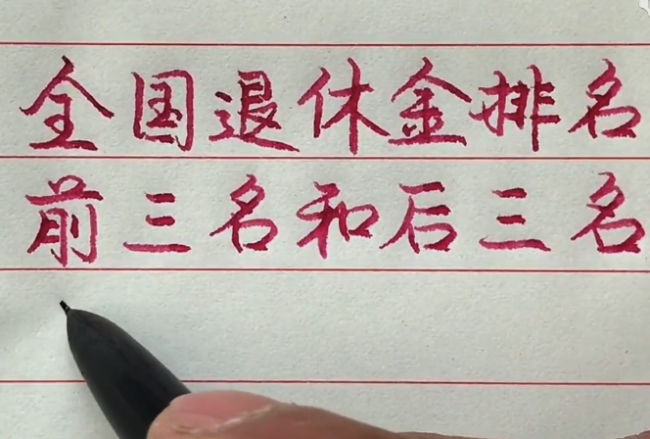 全国退休金排名
前三名和后三名